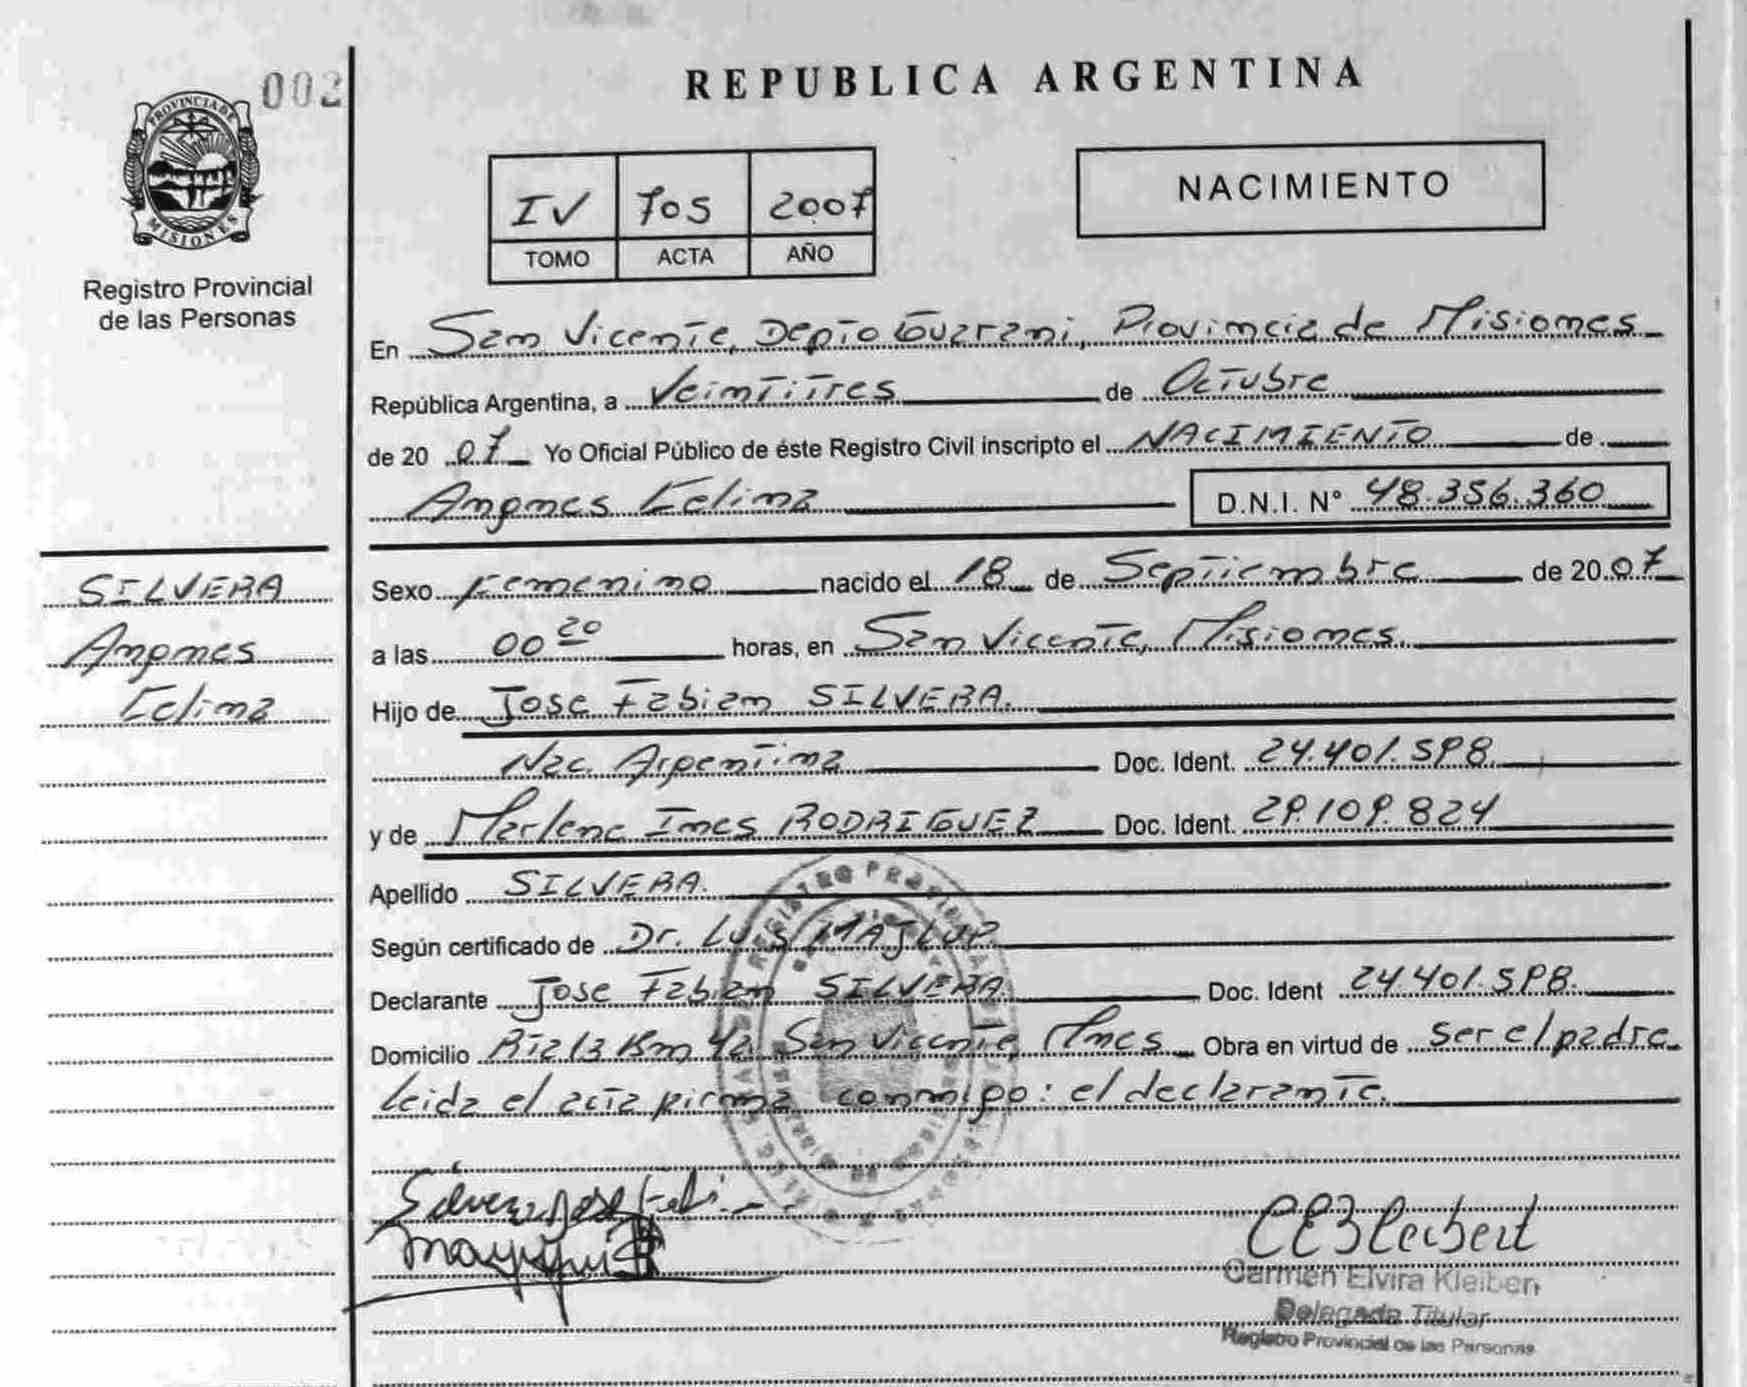 002
PROVINCIA DE
MISIONES
Registro Provincial
de las Personas
REPUBLICA ARGENTINA
IV 705 2007
TOMO ACTA AÑO
NACIMIENTO
En San Vicente, Depto Guarani, Provincia de Misiones
República Argentina, a Veintitres de Octubre
de 2007 Yo Oficial Público de éste Registro Civil inscripto el NACIMIENTO de
Celina D.N.I. N° 48.356.360
SILVERA
Celina
Sexo Femenino nacido el 18 de Septiembre de 2007
a las 00 20 horas, en San Vicente, Misiones.
Hijo de Jose Fabian SILVERA.
Nac. Argentina Doc. Ident. 24.401.598.
y de Marlene Ines RODRIGUEZ Doc. Ident. 29.109.824
Apellido SILVERA.
Según certificado de Dr. Luis MAJLUF
Declarante Jose Fabian SILVERA Doc. Ident 24.401.598.
Domicilio Rta 13 Km 42 San Vicente, Mnes Obra en virtud de ser el padre
Leida el acta firma conmigo: el declarante.
Carmen Elvira Kleibert
Delegada Titular
Registro Provincial de las Personas